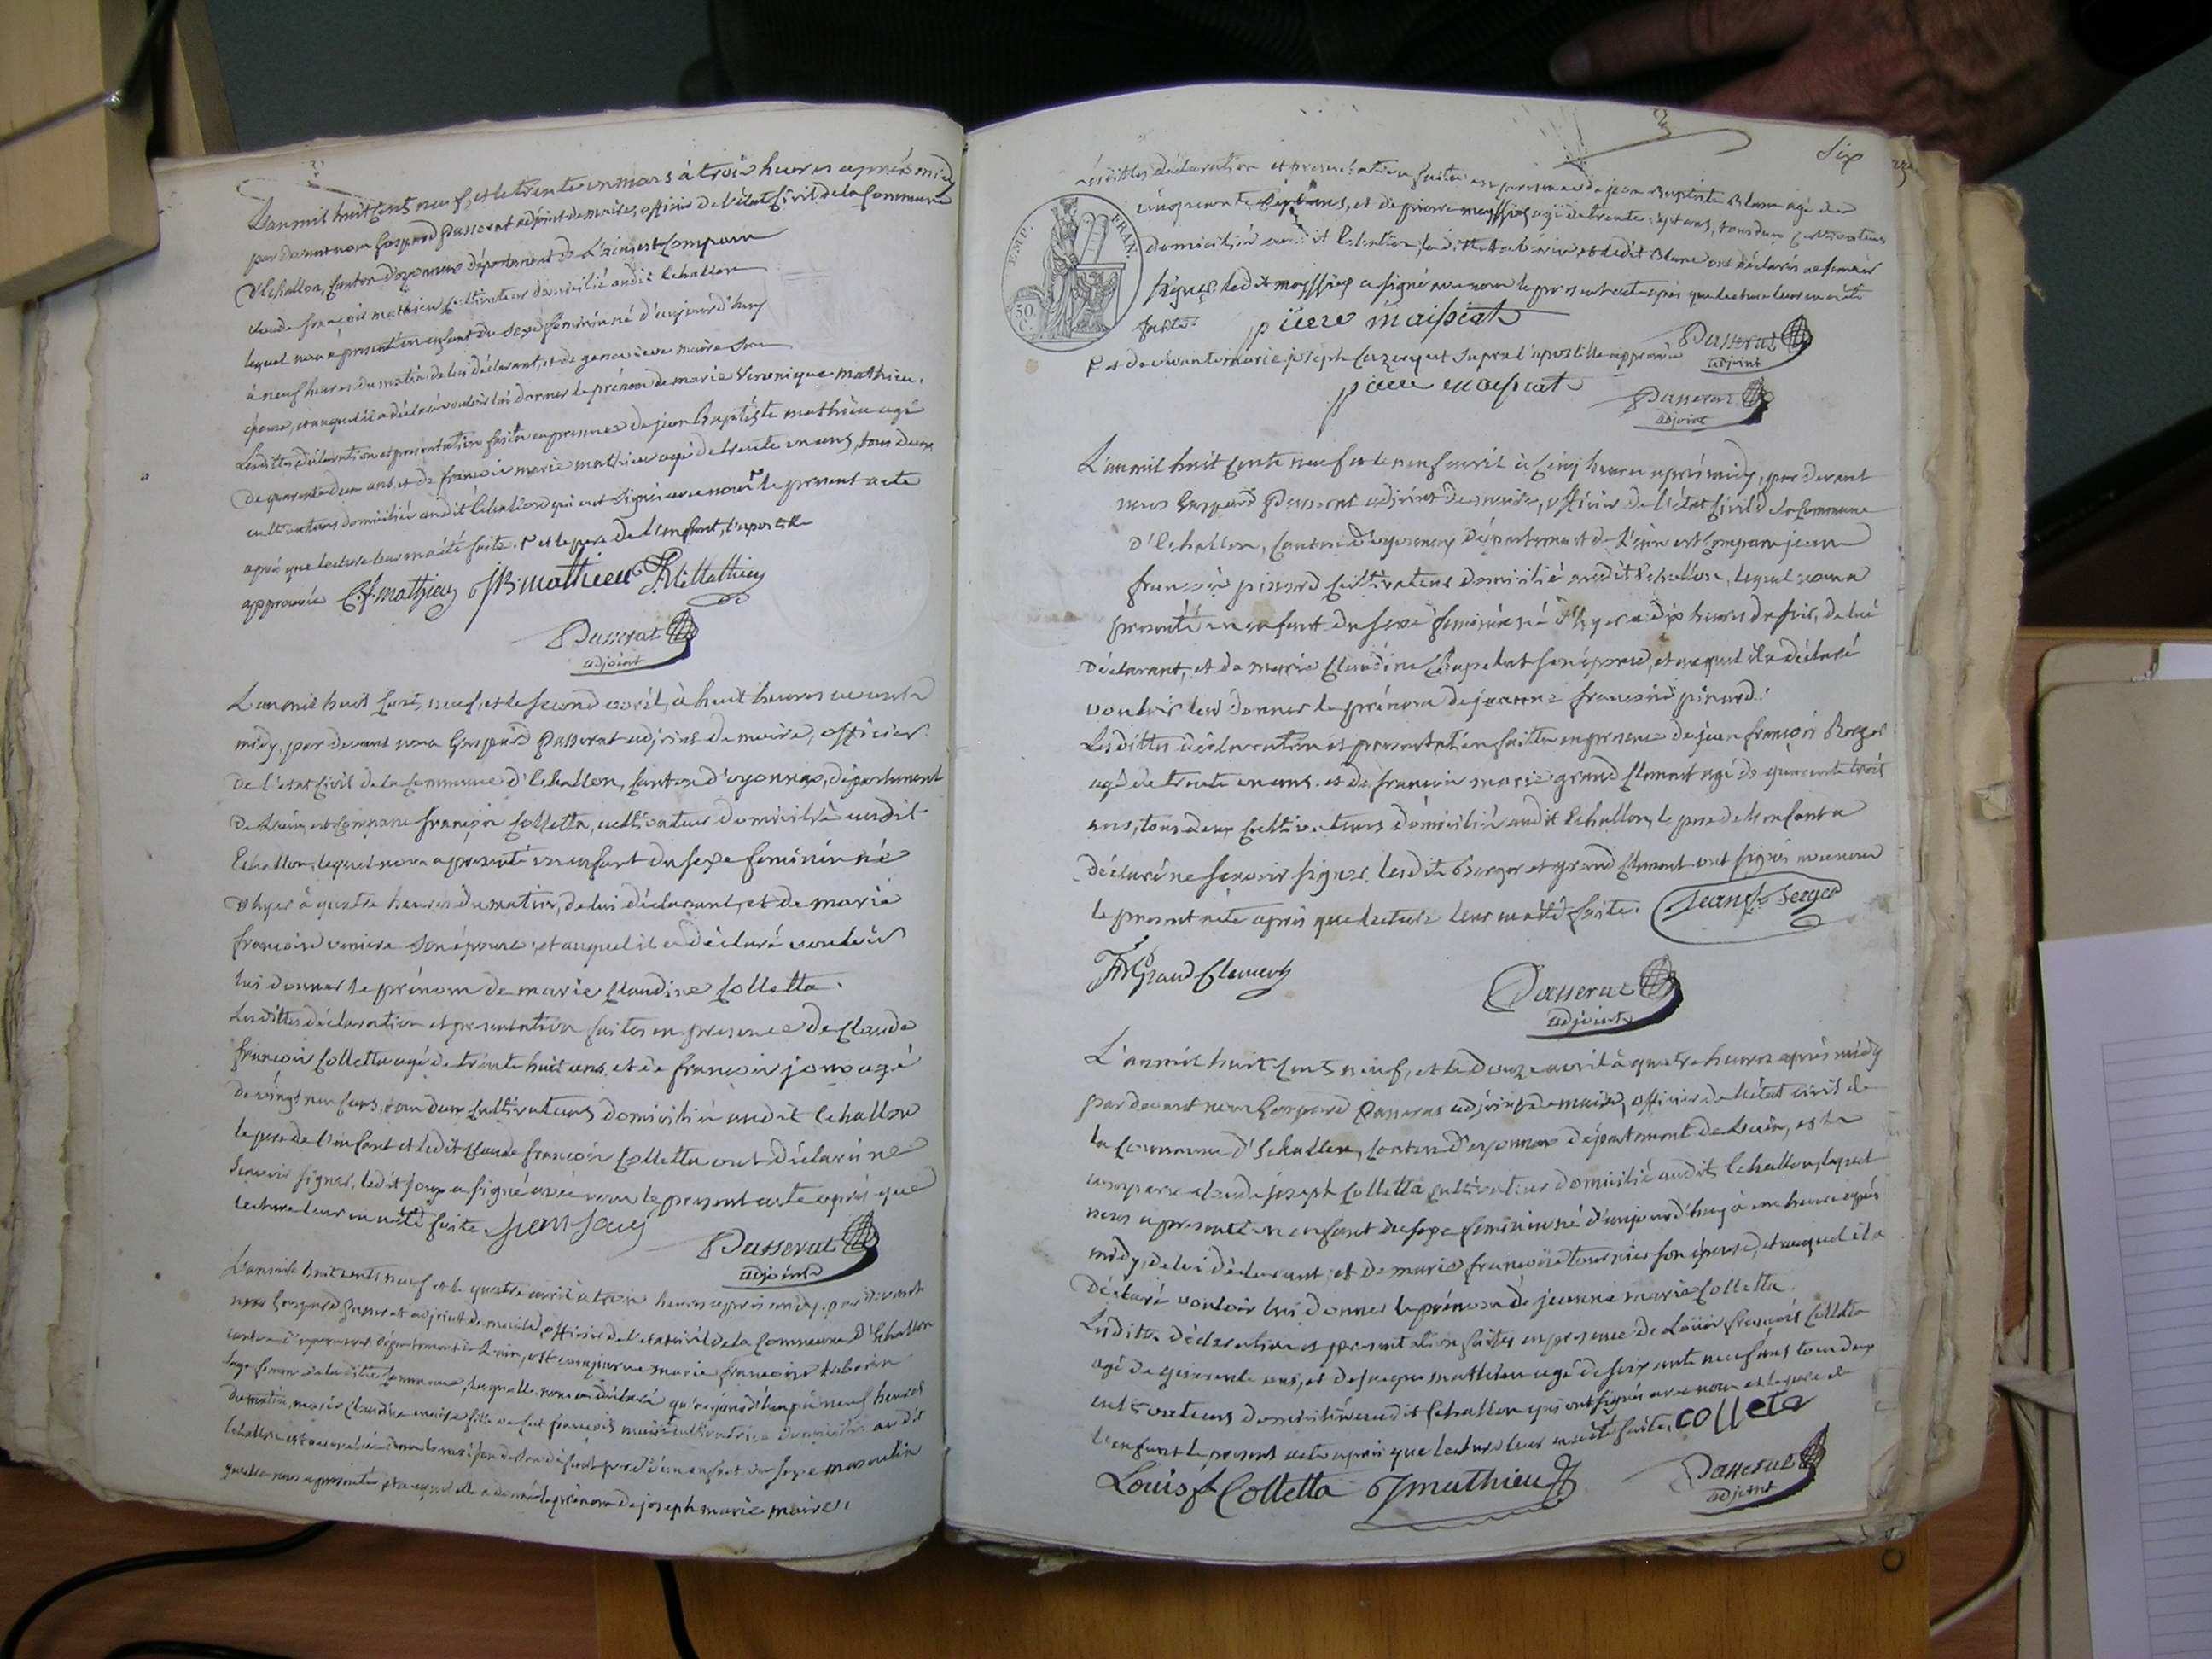 L'an mil huit cents neuf, et le trente un mars à trois heures après midy
par devant nous Gaspard Passerat adjoint de maire, officier de l'état civil de la Commune
d'Echallon, Canton d'oyonnax département de L'ain est Comparu
Claude françois mathieu Cultivateur domicilié audit Echallon
lequel nous a présenté un enfant du sexe féminin né d'aujourd'huy
à neuf heures du matin de lui déclarant, et de genevieve maire son
épouse, et auquel il a déclaré vouloir lui donner le prénom de marie Veronique mathieu.
Lesdittes déclaration et présentation faites en présence de jean Baptiste mathieu agé
de quarante deux ans et de françois marie mathieu agé de trente un ans, tous deux
cultivateurs domiciliés audit Echallon qui ont signés avec nous le présent acte
après que lecture leur en a été faite. et le pere de l'enfant, l'apostille
approuvée C.f. mathieu JB mathieu fM Mathieu
Passerat
adjoint
L'an mil huit Cent neuf, et le second avril, à huit heures avant
midy, par devant nous Gaspard Passerat adjoint de maire, officier
de l'état civil de la Commune d'Echallon, Canton d'oyonnax, département
de L'ain, est Comparu françois Colletta, cultivateur domicilié audit
Echallon, lequel nous a présenté un enfant du sexe feminin né
d'hyer à quatre heures du matin, de lui déclarant, et de marie
françoise son épouse, et auquel il a déclaré vouloir
lui donner le prénom de marie Claudine Colletta.
Lesdittes déclaration et présentation faites en presence de Claude
françois Colletta agé de trente huit ans, et de françois joux agé
de vingt neuf ans, tous deux Cultivateurs domiciliés audit Echallon
le pere de l'enfant et ledit Claude françois Colletta ont déclaré ne
scavoir signer, ledit joux a signé avec nous le présent acte après que
lecture leur en a été faite.
Passerat
adjoint
L'an mil huit cents neuf et le quatre avril à trois heures après midy, par devant
nous Gaspard Passerat adjoint de maire, officier de l'état civil de la Commune d'Echallon
canton d'oyonnax département de L'ain, est comparue marie françoise
sage femme de laditte Commune, laquelle nous a déclaré qu'aujourd'huy à neuf heures
du matin, marie Claudine maire fille de feu françois maire cultivatrice domiciliée audit
Echallon est accouchée dans la maison de son défunt pere d'un enfant du sexe masculin
qu'elle nous a présenté, et auquel elle a donné le prénom de joseph marie maire.
Six
lesdittes déclaration et présentation faites en présence de jean Baptiste Blanc agé de
cinquante ans, et de pierre agé de trente sept ans, tous deux Cultivateurs
domiciliés audit Echallon, laditte et ledit Blanc ont déclarés ne scavoir
signer, ledit a signé avec nous le present acte après que lecture leur en a été
faite.
EMP. FRAN.
50 C.
pierre maissiat
Passerat
adjoint
l'apostille approuvée
pierre maissiat
Passerat
adjoint
L'an mil huit Cents neuf et le neuf avril à Cinq heures après midy, par devant
nous Gaspard Passerat adjoint de maire, officier de l'état Civil de la Commune
d'Echallon, Canton d'oyonnax département de L'ain est Comparu jean
françois pinard Cultivateur domicilié audit Echallon, lequel nous a
presenté un enfant du sexe feminin né d'hyer à dix heures du soir, de lui
déclarant, et de marie Claudine Chapelut son épouse, et auquel il a déclaré
vouloir lui donner le prénom de jeanne françoise pinard.
Lesdittes déclaration et présentation faites en presence de jean françois Berger
agé de trente un ans, et de françois marie grand Clement agé de quarante trois
ans, tous deux Cultivateurs domiciliés audit Echallon, le pere de l'enfant a
déclaré ne scavoir signer. lesdits Berger et grand Clement ont signés avec nous
le present acte après que lecture leur en a été faite. jean f. berger
fM Grand Clement
Passerat
adjoint
L'an mil huit Cents neuf, et le douze avril à quatre heures après midy
par devant nous Gaspard Passerat adjoint de maire, officier de l'état civil de
la Commune d'Echallon, Canton d'oyonnax département de L'ain, est
comparu claude joseph Colletta cultivateur domicilié audit Echallon, lequel
nous a présenté un enfant du sexe feminin né d'aujourd'huy à une heure après
midy, de lui déclarant, et de marie françoise tournier son épouse, et auquel il a
déclaré vouloir lui donner le prénom de jeanne marie Colletta.
Lesdittes déclaration et présentation faites en presence de Louis françois Colletta
agé de quarante ans, et de jacques mathieu agé de soixante neuf ans tous deux
cultivateurs domiciliés audit Echallon qui ont signés avec nous et le pere de
l'enfant le présent acte après que lecture leur en a été faite. colleta
Louis f. Colletta J mathieu
Passerat
adjoint